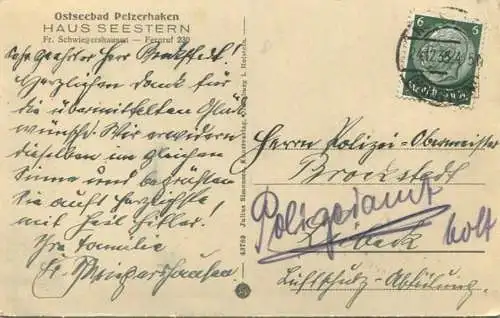 Ostseebad Pelzerhaken
HAUS SEESTERN
Fr. Schwiegershausen — Fernruf 230
Sehr geehrter Herr
Herzlichen Dank für
die übermittelten Glück
wünsche. Wir erwidern
dieselben im gleichen
Sinne und begrüßen
Sie aufs herzlichste
mit Heil Hitler!
Ihre Familie
Fr. Schwiegershausen.
43783 Julius Simonsen, Kunstverlag, Oldenburg i. Holstein
6 6
Herrn Polizei-Obermeister
Polizeiamt
Lübeck
Luftschutz-Abteilung.